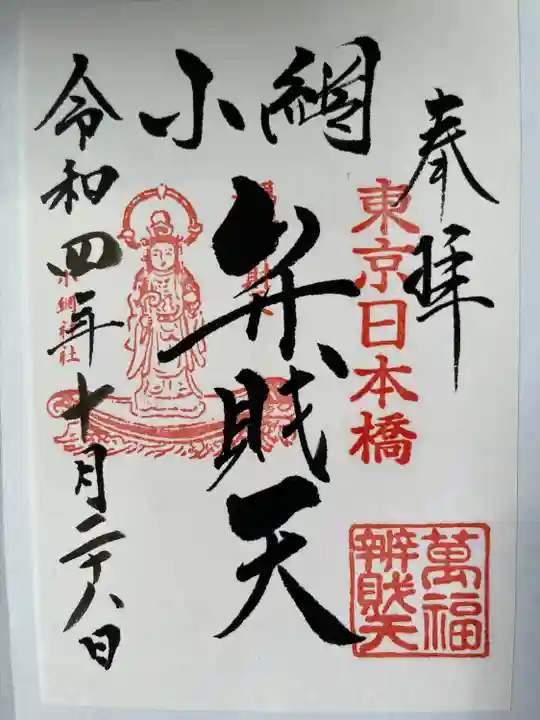 奉拝
東京日本橋
小網
弁財天
萬福
辨財天
小網神社
令和四年十月二十八日